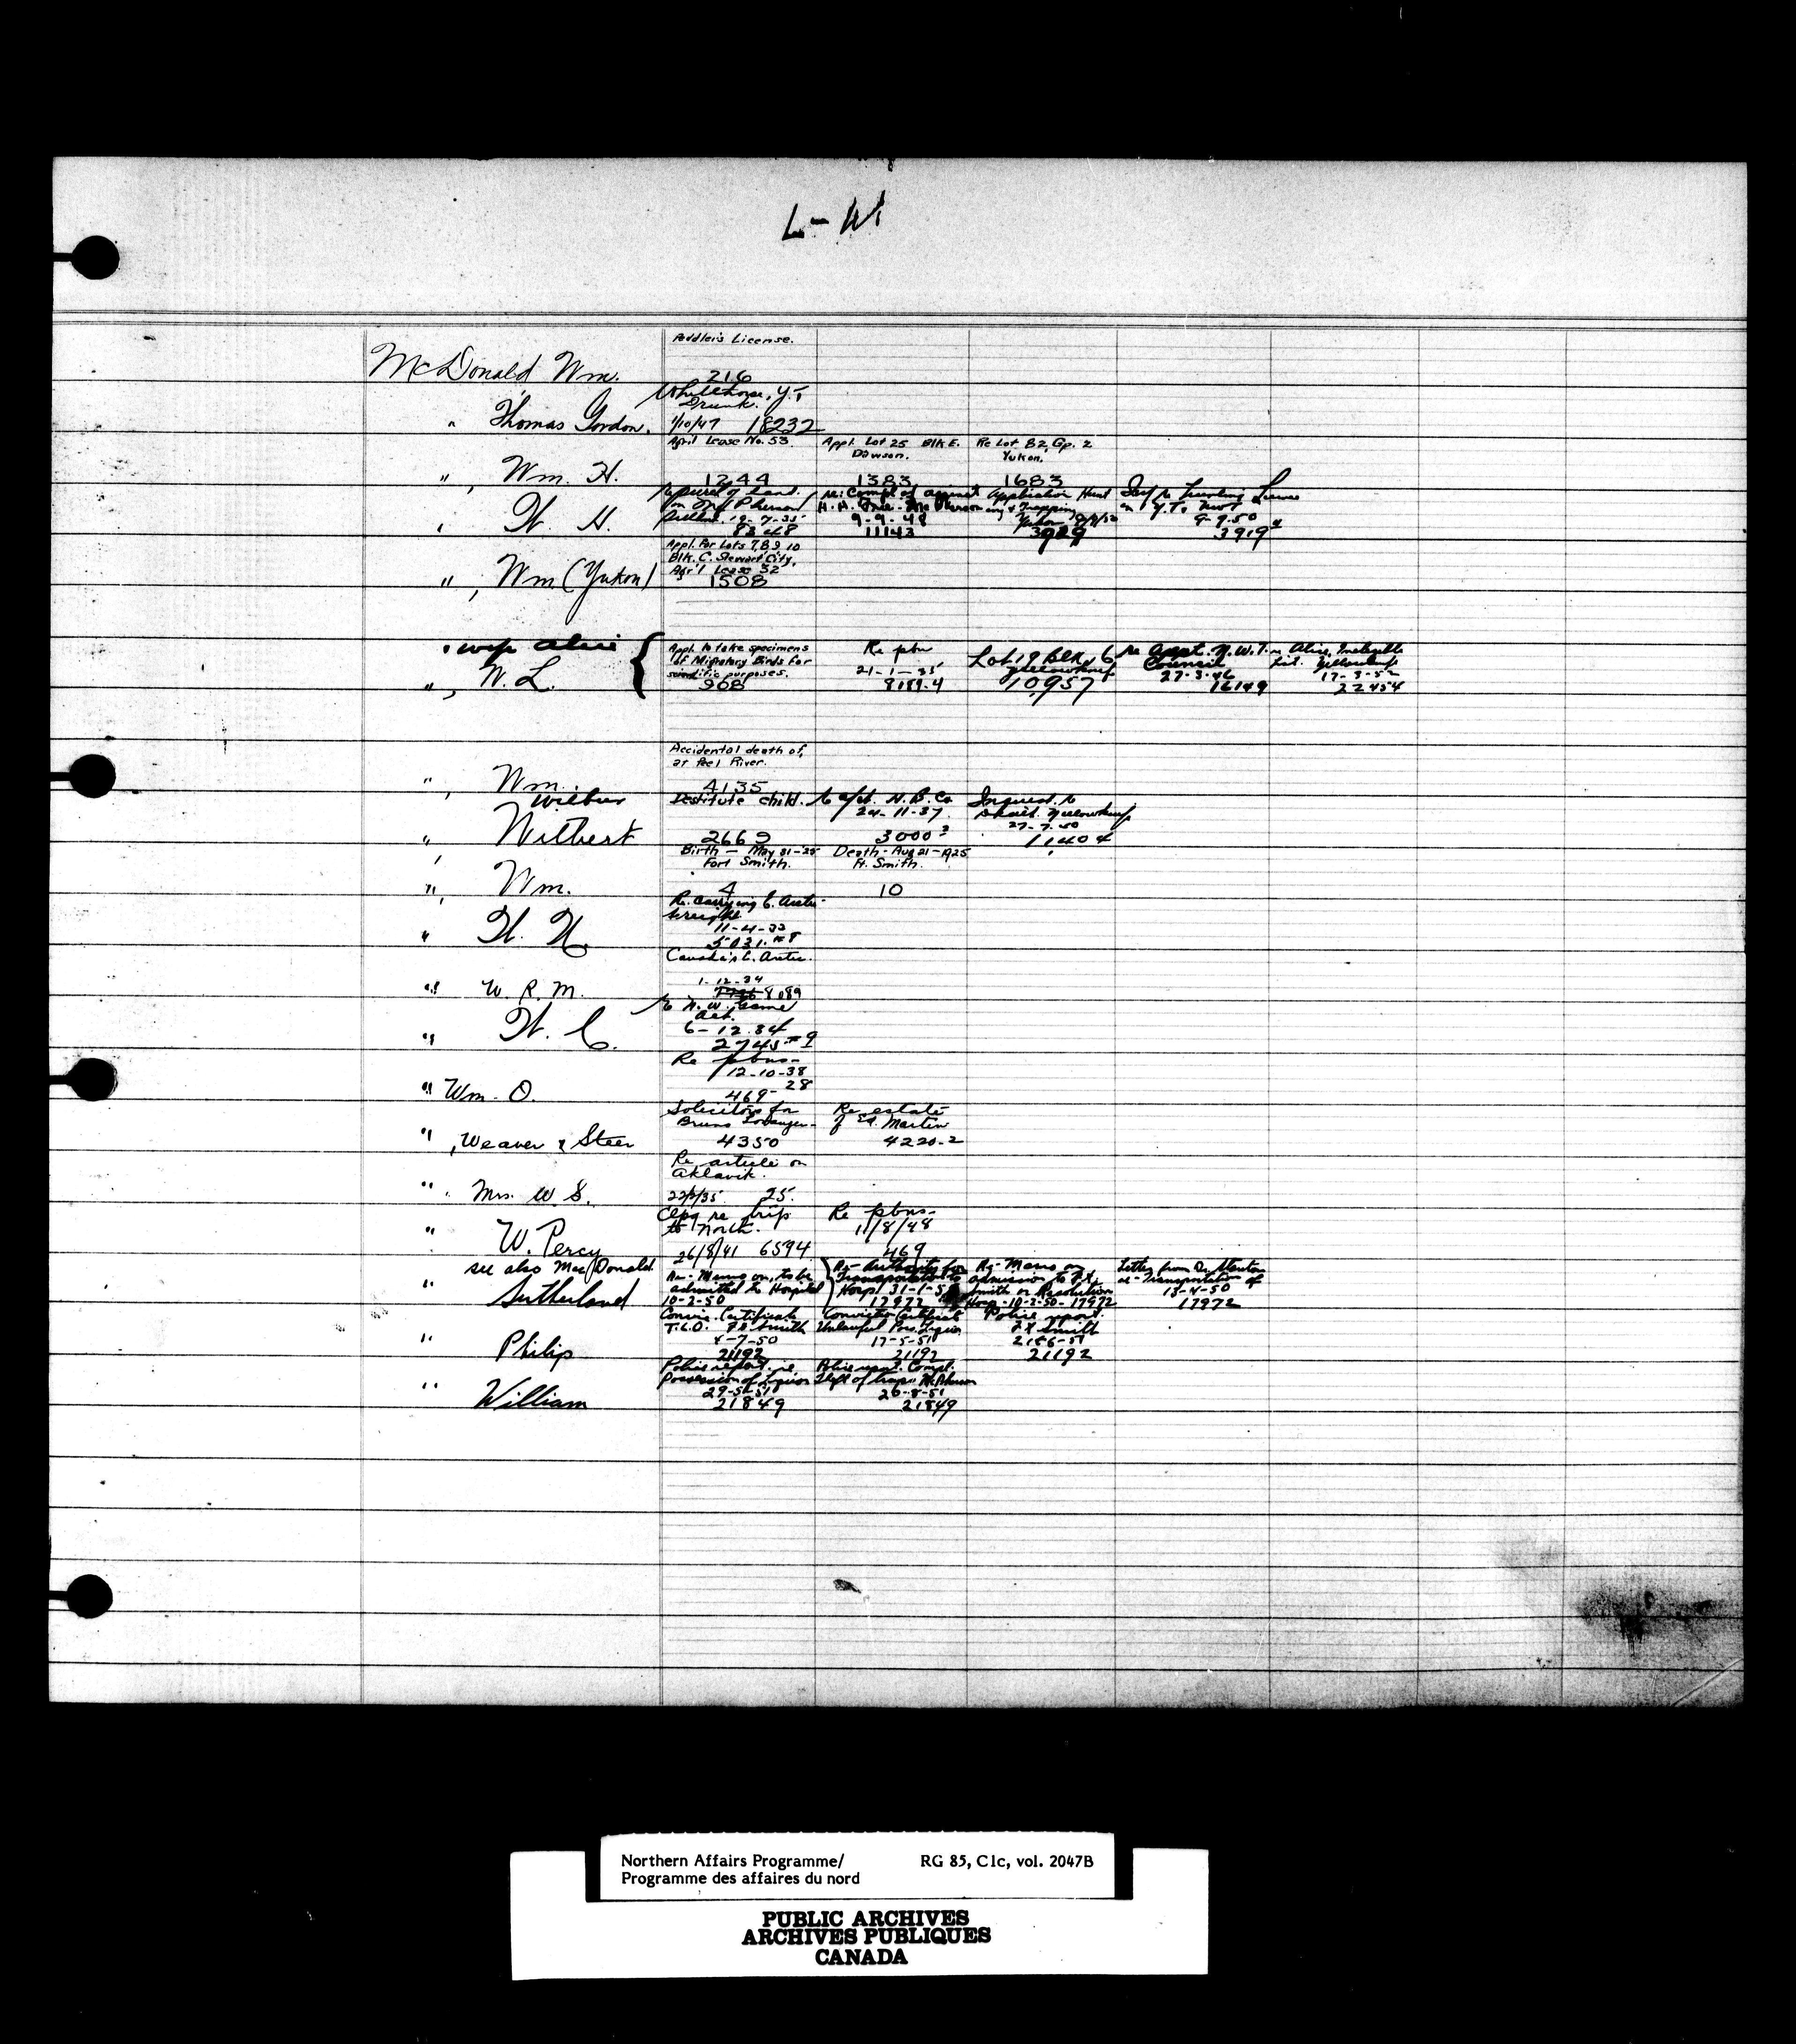 L-W
Peddler's License.
McDonald Wm. 216
Whitehorse, Y.T.
Drunk.
" Thomas Gordon. 1/10/47 18232
Agril Lease No. 53 Appl. Lot 25 Blk E. Re Lot 82, Gp. 2
Dawson. Yukon.
", Wm. H. 1244 1383 1683
of land. re: Compl of against Application Hunt
McPherson H. H. ing & Trapping
12-7-35 9-9-48 Yukon 9-9-50
" W. H. 8348 11143 3919
Appl. For Lots 7, 8, 9 10
Blk. C. Stewart City.
Agr'l Lease 52
", Wm (Yukon) 1508
" wife Alice Appl. to take specimens Re pbn Lot 19 Blk 6 re Appt. N.W.T. re Alice,
of Migratory Birds for 21-1-35 Yellowknife Council Lit. Yellowknife
scientific purposes. 27-3-46 17-3-52
", W. L. 908 8189-4 10957 16149 22454
Accidental death of,
at Peel River.
", Wm. 4135
Wilbur Destitute child. H. B. Co. Inquest re
24-11-37 death Yellowknife
27-7-50
" Wilbert 2669 3000 11404
Birth - May 21-25 Death - Aug 21-1925
Fort Smith. Ft. Smith.
", Wm. 4 10
Re. carrying E. Arctic
freight
11-4-33
" W. N. 5031 #8
Canada's E. Arctic.
1-12-34
" W. R. M. 8089
re N. W. Game
Act.
6-12-34
" W. C. 2745 #9
Re pbns-
12-10-38
28
" Wm. O. 469-
Solicitors for Re estate
Bruno of Ed. Martin
", Weaver & Steer 4350 4220-2
Re article on
Aklavik.
" Mrs. W. S. 22/2/35 25.
Clpg re trip Re pbns-
to North. 11/8/48
" W. Percy 26/8/41 6594 469
see also MacDonald
Re- Memo on, to be Re- Authority for Re- Memo on Letter from Dr. Stanton
admitted to Hospital Transportation to admission to Ft. re- Transportation of
" Sutherland 10-2-50 Hosp 31-1-50 Smith or Resolution 13-4-50
17972 Hosp - 10-2-50 - 17972 17972
Convic. Certificate Conviction Certificate Police report.
T.L.O. Ft. Smith Unlawful Poss. Liquor Ft Smith
4-7-50 17-5-51 21-6-51
" Philip 21192 21192 21192
Police report re Police report Compl.
Possession of Liquor Theft of traps McPherson
29-5-51 26-8-51
" William 21849 21849
Northern Affairs Programme/ RG 85, C1c, vol. 2047B
Programme des affaires du nord
PUBLIC ARCHIVES
ARCHIVES PUBLIQUES
CANADA